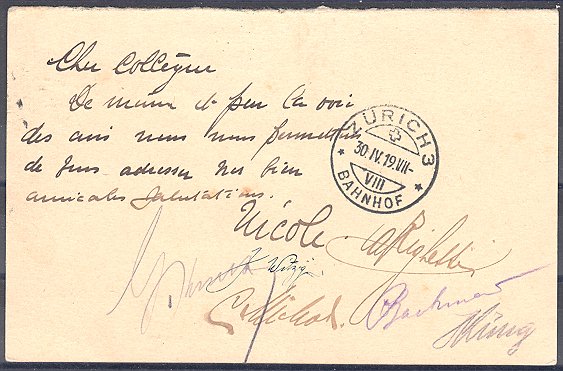 Cher Collègue
De même et par la voie
des airs nous nous permettons
de vous adresser nos bien
amicales salutations.
ZÜRICH 3
30.IV.19.VII-
VIII
BAHNHOF
Nicole
A Righetti
Witzig
G. Michod.
Bachmann